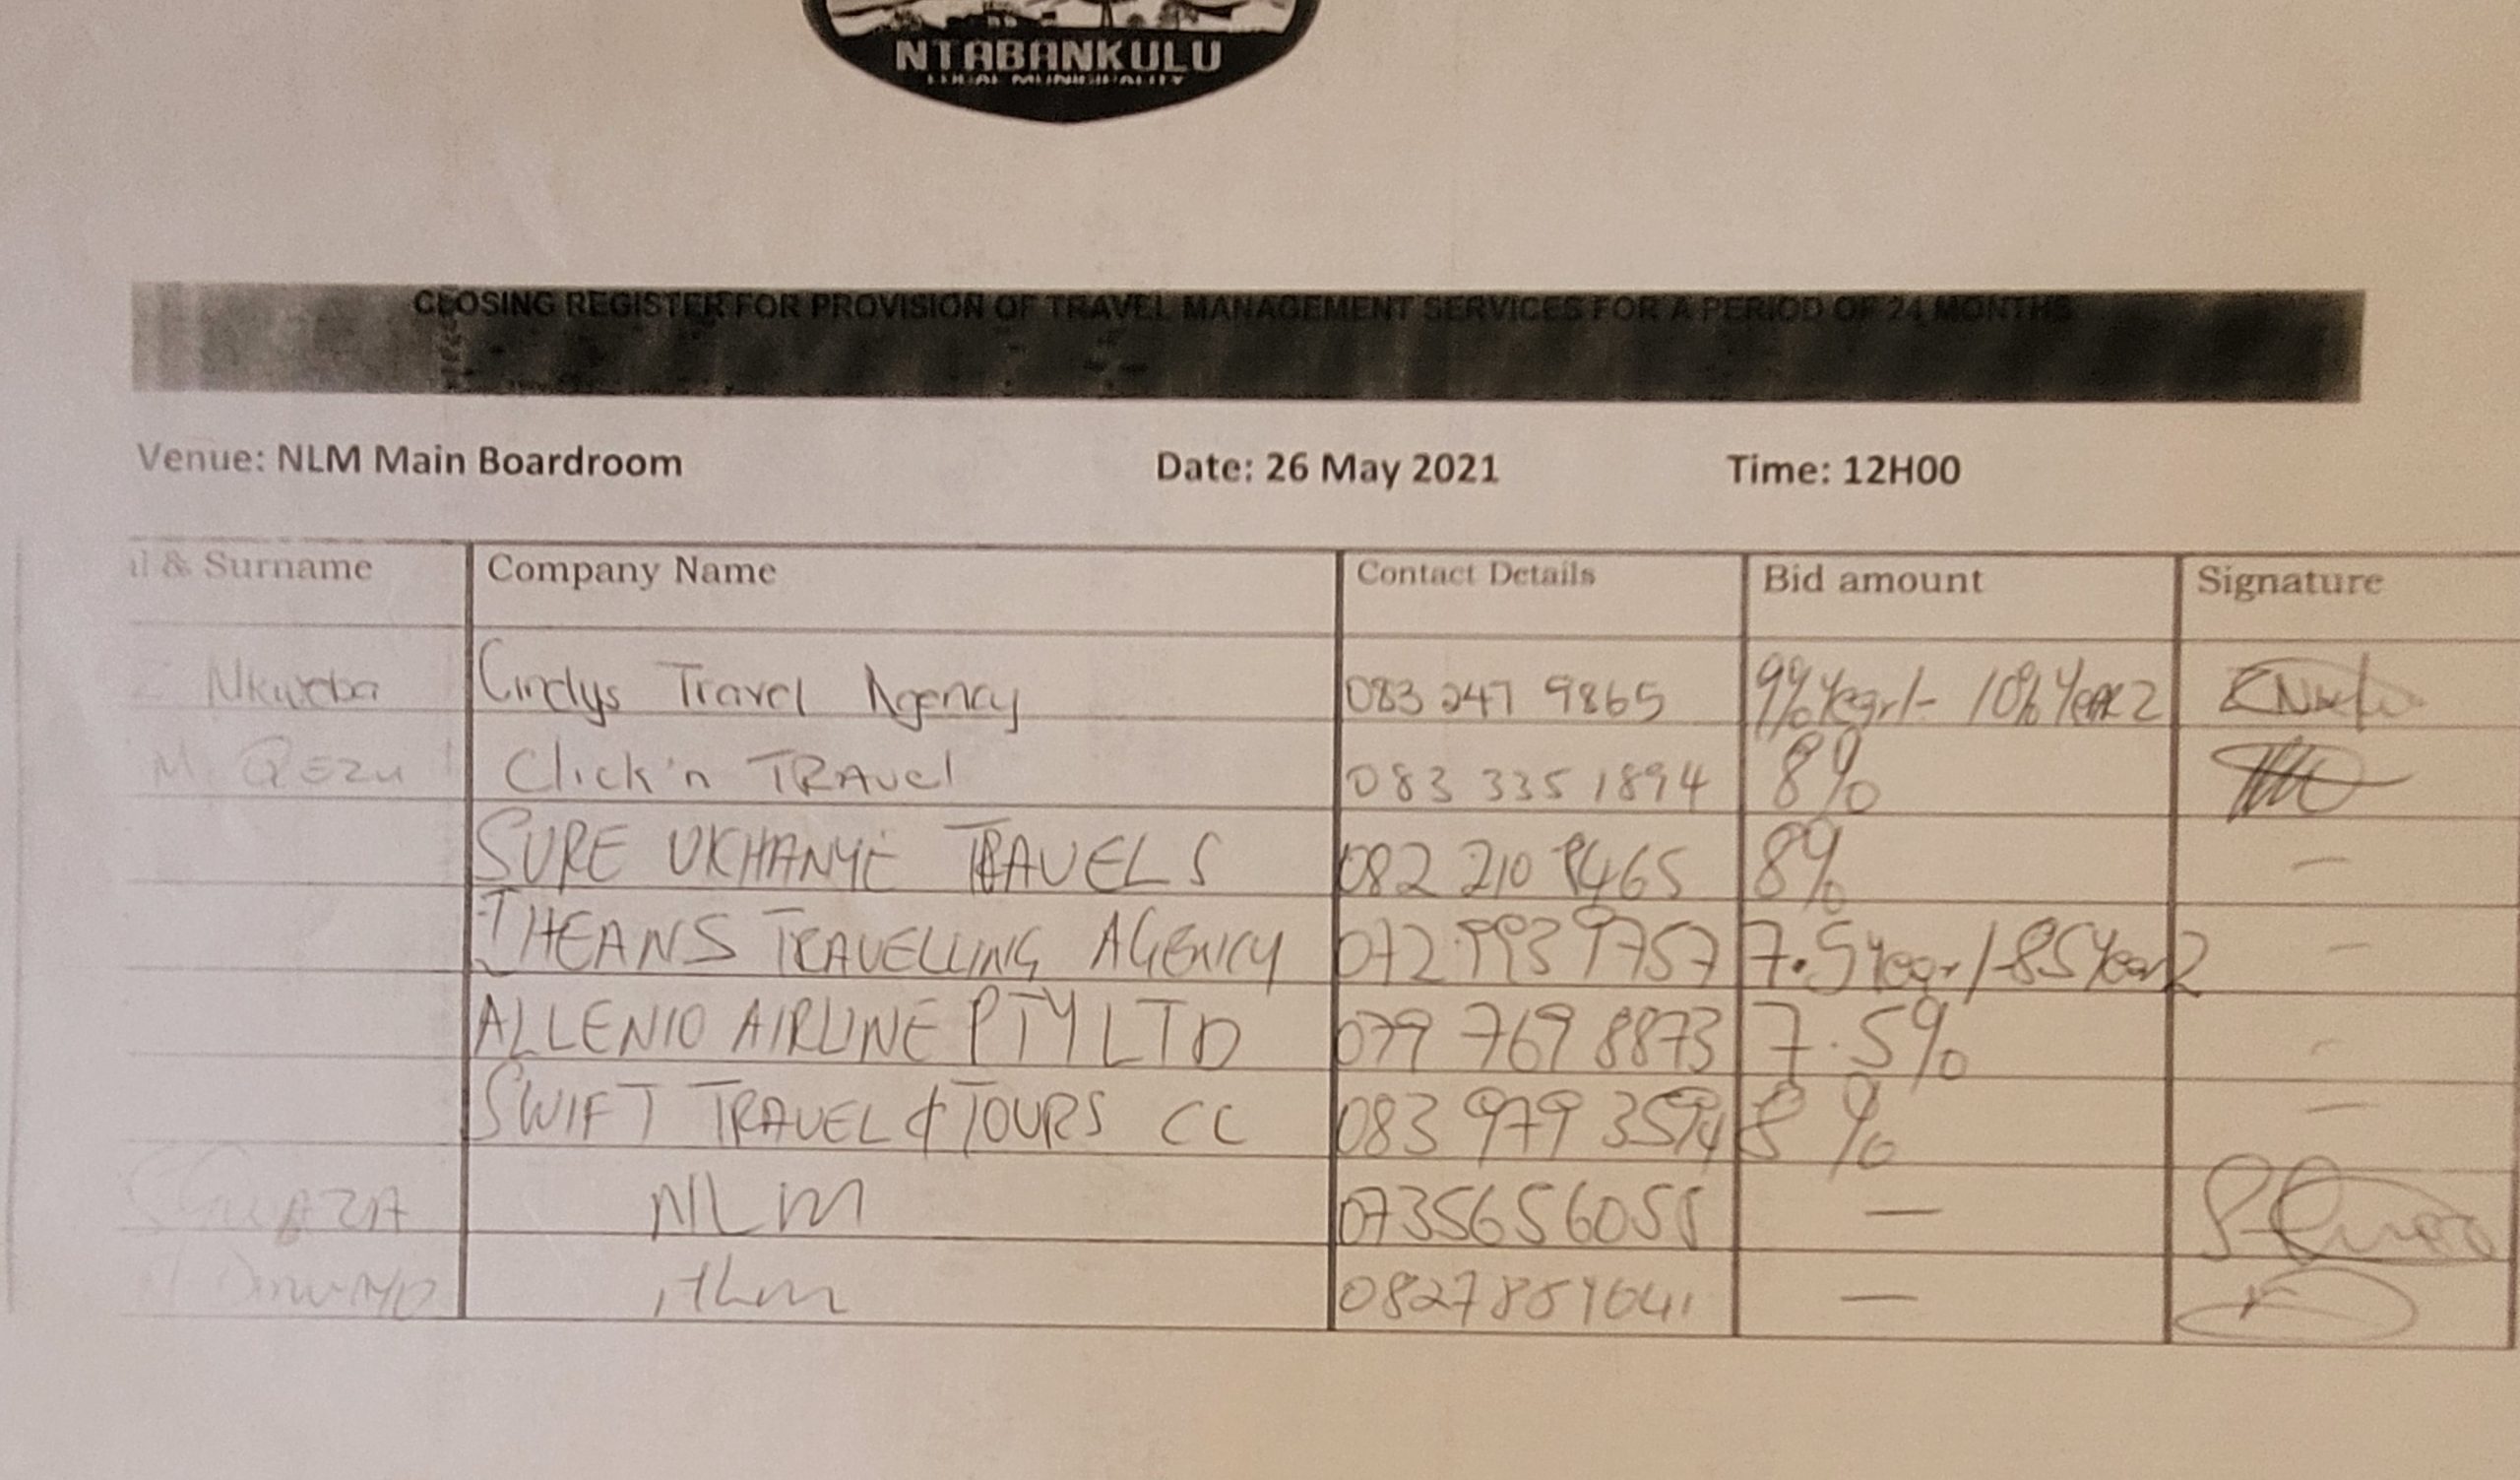 NTABANKULU
LOCAL MUNICIPALITY
CLOSING REGISTER FOR PROVISION OF TRAVEL MANAGEMENT SERVICES FOR A PERIOD OF 24 MONTHS
Venue: NLM Main Boardroom Date: 26 May 2021 Time: 12H00
& Surname Company Name Contact Details Bid amount Signature
Z Nkweba Cindys Travel Agency 083 247 9865 9% Year 1 - 10% Year 2
M. QEZU Click'n TRAvel 083 335 1894 8%
SURE UKHANYE TRAVELS 082 210 8465 8% —
THEANS TRAVELLING AGENCY 072 9939757 7.5 Year 1 - 8.5 Year 2 -
ALLENIO AIRLINE PTY LTD 079 769 8873 7.5% -
SWIFT TRAVEL & TOURS CC 083 979 3594 8 % —
NLM —
—